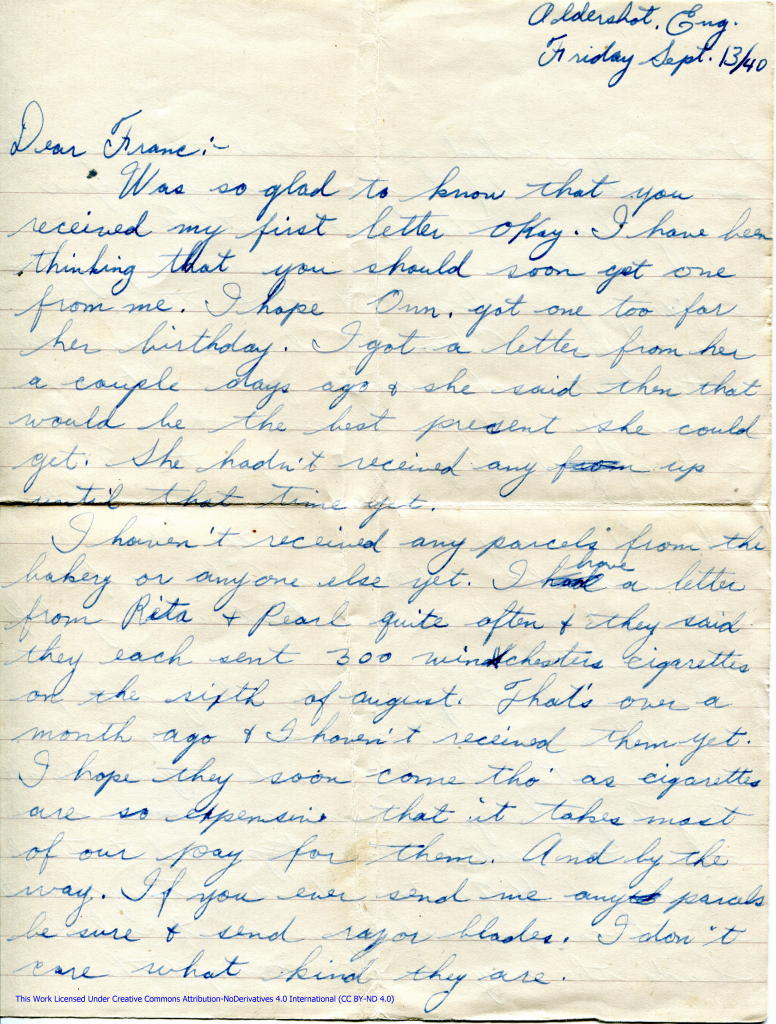 Aldershot, Eng.
Friday Sept. 13/40
Dear Franc:-
Was so glad to know that you
received my first letter okay. I have been
thinking that you should soon get one
from me. I hope Onn. got one too for
her birthday. I got a letter from her
a couple days ago & she said then that
would be the best present she could
get. She hadn't received any from up
until that time yet.
I haven't received any parcels from the
bakery or anyone else yet. I have a letter
from Rita & Pearl quite often & they said
they each sent 300 winchesters cigarettes
on the sixth of august. That's over a
month ago & I haven't received them yet.
I hope they soon come tho' as cigarettes
are so expensive that it takes most
of our pay for them. And by the
way. If you ever send me any parcels
be sure & send razor blades. I don't
care what kind they are.
This Work Licensed Under Creative Commons Attribution-NoDerivatives 4.0 International (CC BY-ND 4.0)